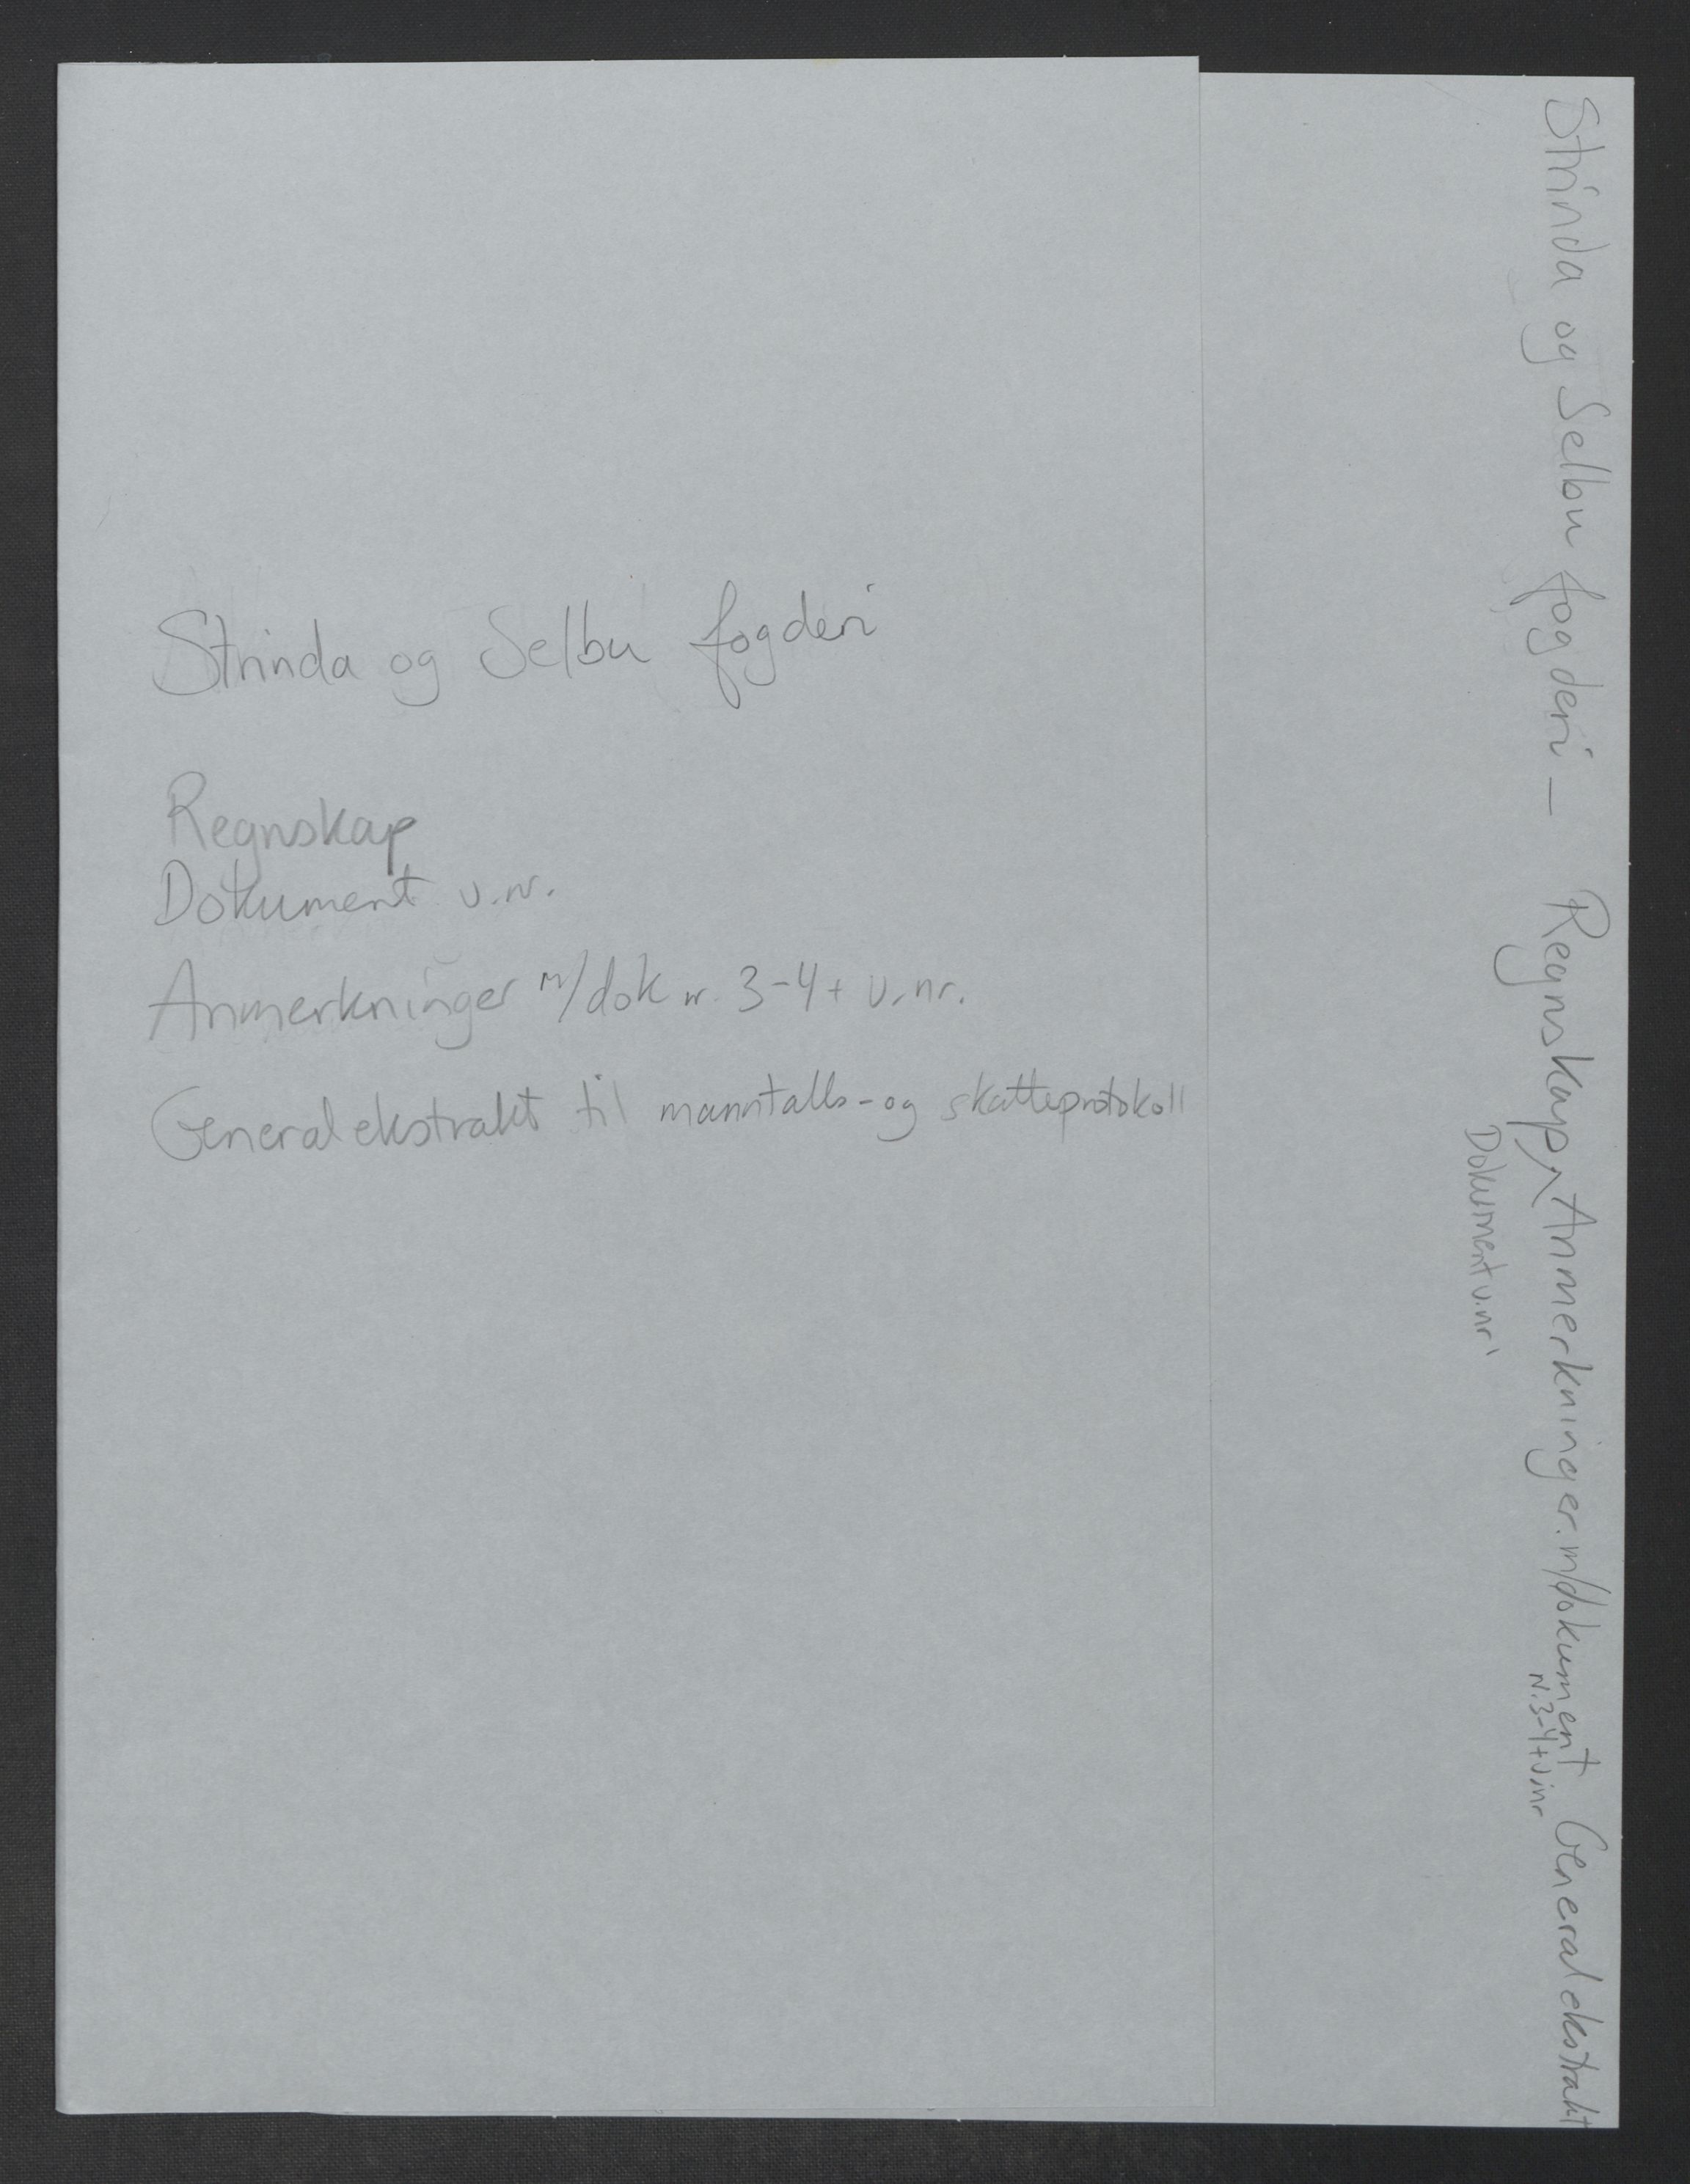 Strinda og Selbu fogderi
Regnskap
Dokument u.nr.
Anmerkninger m/dok nr. 3-4 + u.nr.
Generalekstrakt til manntalls- og skatteprotokoll
Strinda og Selbu fogderi – Regnskap, Anmerkninger. m/dokument Generalekstrakt
Dokument u.nr
nr. 3-4 + u.nr